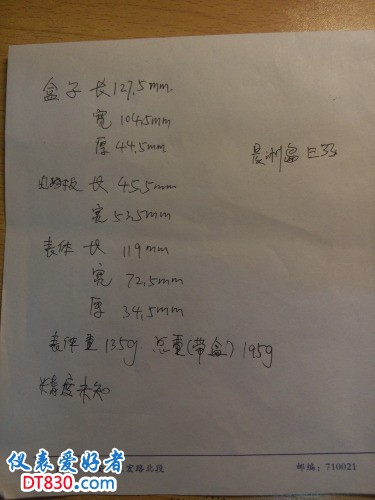 盒子 长 127.5mm
宽 104.5mm
厚 44.5mm
电路板 长 45.5mm
宽 53.5mm
表体 长 119mm
宽 72.5mm
厚 34.5mm
表体重 135g 总重(带盒) 195g
精度未知
仪表爱好者
DT830.com
宏路北段
邮编:710021